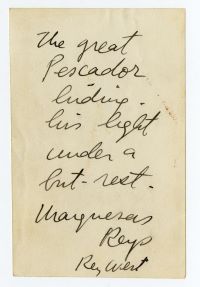 The great
Pescador
hiding.
his light
under a
but-rest.
Marquesas
Keys
Key West